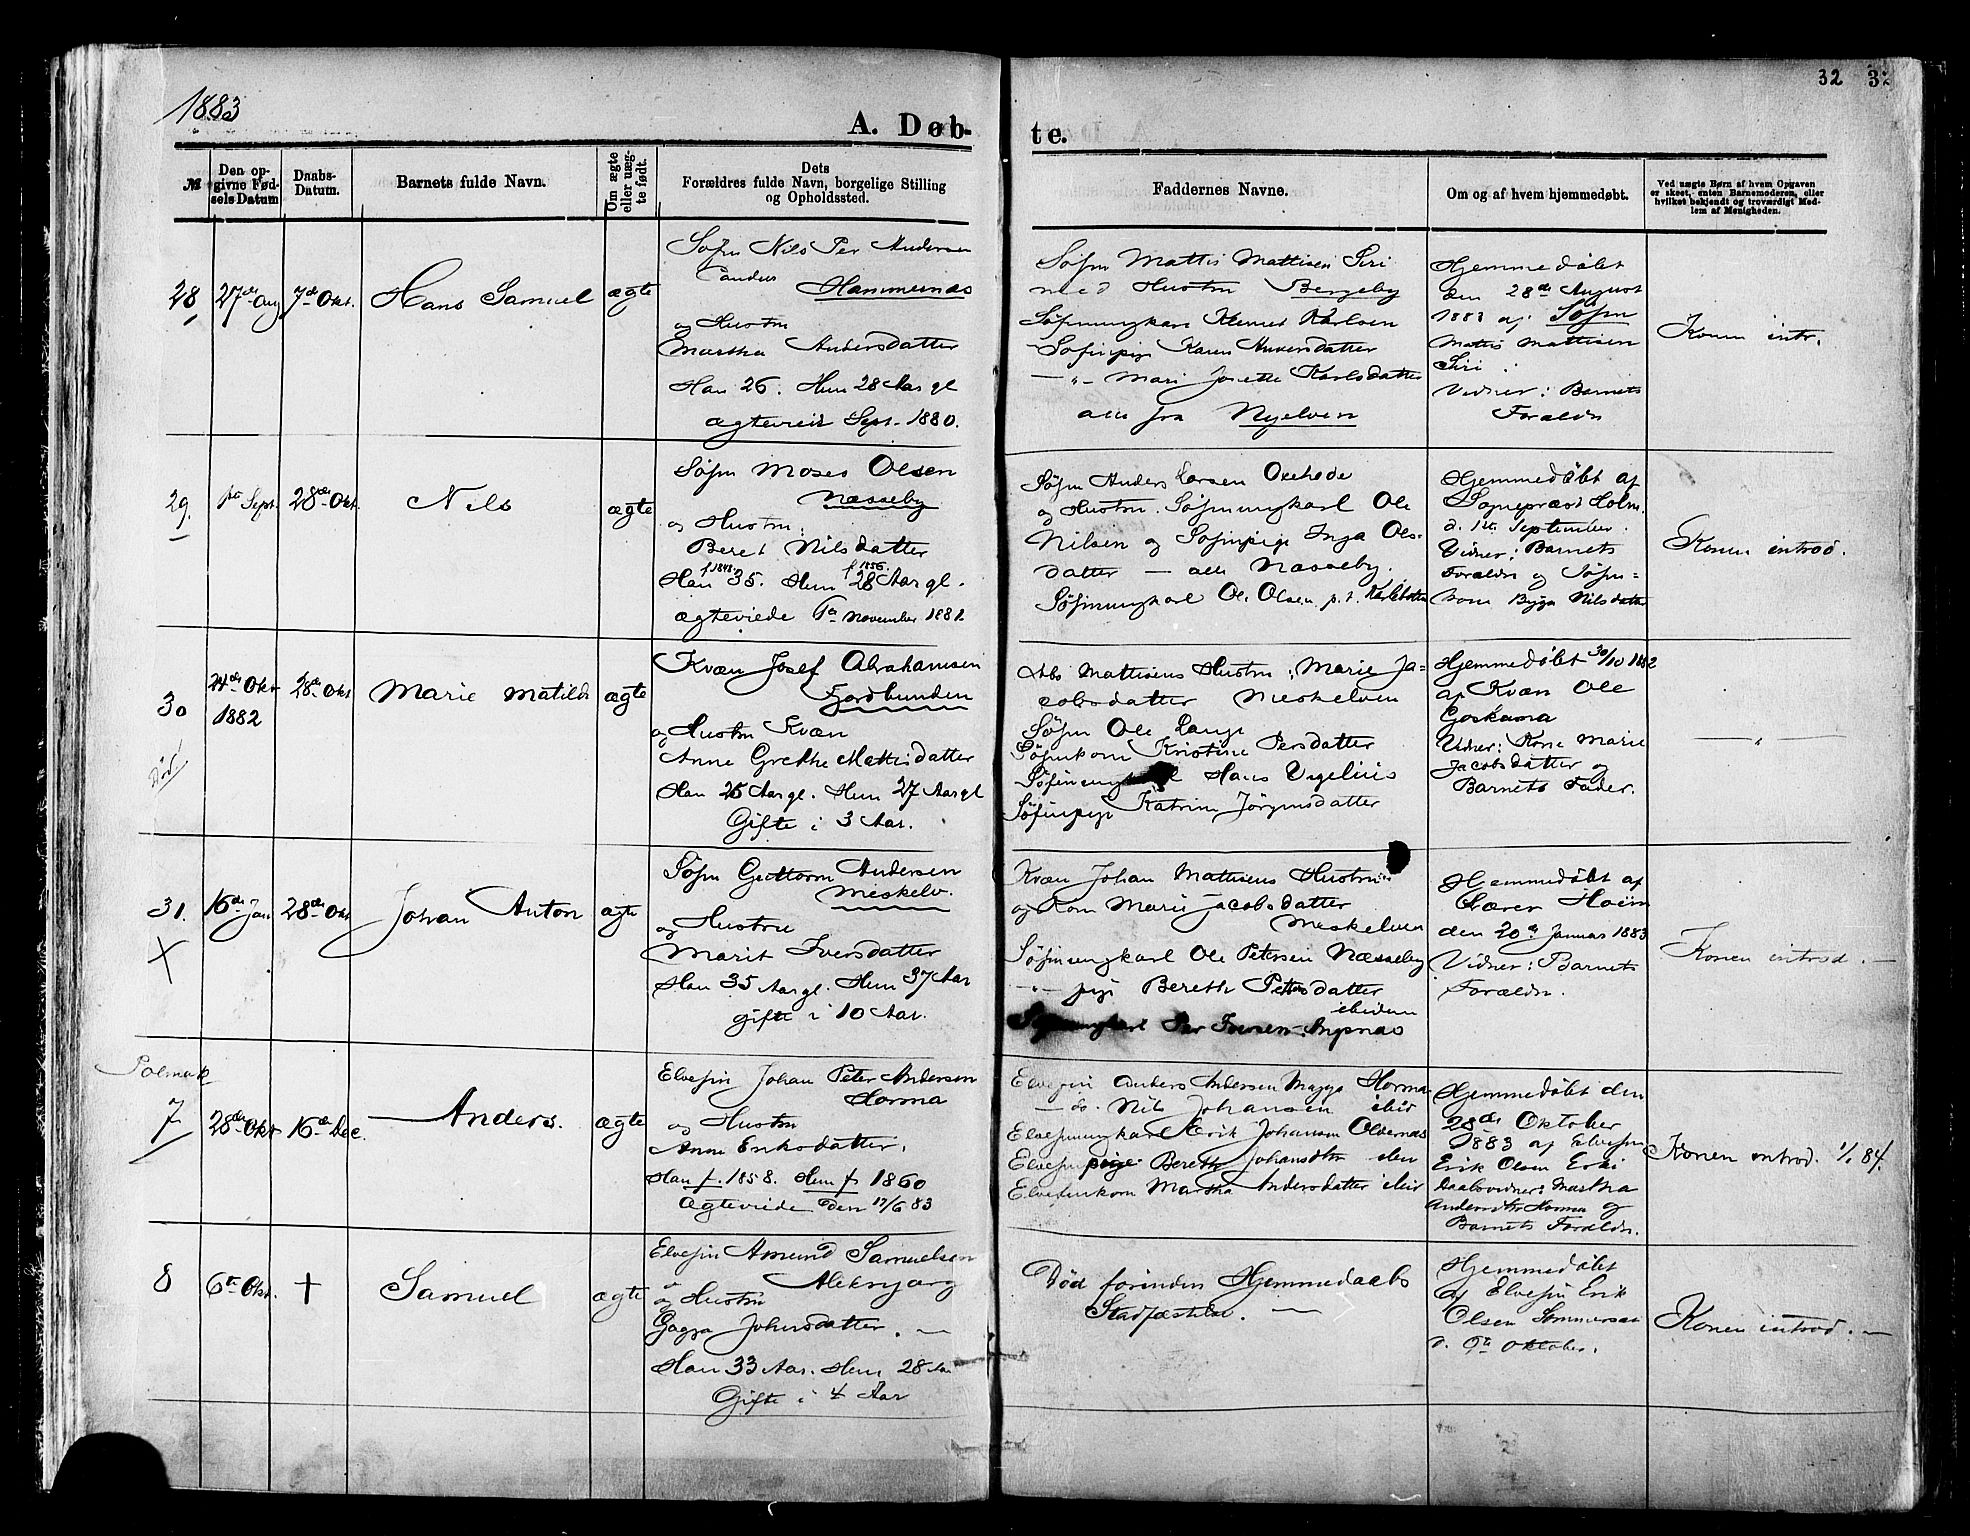 1883
32 32
A. Døb-
te.
№
Den op-
givne Fød-
sels Datum
Daabs-
Datum.
Barnets fulde Navn.
Om ægte
eller uæg-
te født.
Dets
Forældres fulde Navn, borgelige Stilling
og Opholdssted.
Faddernes Navne.
Om og af hvem hjemmedøbt.
Ved uægte Børn af hvem Opgaven
er skeet, enten Barnemoderen, eller
hvilket bekjendt og troværdigt Med-
lem af Menigheden.
28
27de Aug
7de Okt.
Hans Samuel
ægte
Søfin Nils Per Andersen
Hammernæs
og Hustru
Martha Andersdatter
Han 26. Hun 28 Aar gl
ægteviet Sept. 1880.
Søfin Mattis Mattisen Siri
med Hustru Bergeby
Søfinungkarl Klemet Karlsen
Søfinpige Karen Andersdatter
— " — Mari Josette Karlsdatter
alle fra Nyelven
Hjemmedøbt
den 28de August
1883 af Søfin
Mattis Mattisen
Siri
Vidner: Barnets
Forældre
Konen intr.
29.
1ste Sept.
28de Okt.
Nils
ægte
Søfin Moses Olsen
Næsseby
og Hustru
Beret Nilsdatter
f 1848. f 1856.
Han 35. Hun 28 Aar gl.
ægteviede 6te November 1881.
Søfin Anders Larsen Oxehode
og Hustru. Søfinungkarl Ole
Nilsen og Søfinpige Inga Ols-
datter — alle Næsseby.
Søfinungkarl Ole Olsen p. t. Karlebotn
Hjemmedøbt af
Sognepræst Holm.
d. 1ste September.
Vidner: Barnets
Forældre og Søfin=
kone Nilsdatter
Konen introd.
30
Død
24de Okt
1882
28de Okt
Marie Matilde
ægte
Kvæn Josef Abrahamsen
Fjordbunden
og Hustru Kvæn
Anne Grethe Mattisdatter
Han 25 Aar gl. Hun 27 Aar gl
Gifte i 3 Aar.
Abr Mattisens Hustru: Marie Ja=
cobsdatter Meskelven
Søfin Ole Lange
Søfinkone Kristine Persdatter
Søfinungkarl Hans Vigelius
Søfinpige Katrine Jörginsdatter
Hjemmedøbt 30/10 1882
af Kvæn Ole
Vidner: Kone Marie
Jacobsdatter og
Barnets Fader.
— " —
31.
X
16de Jan
28de Okt
Johan Anton
ægte
Søfin Guttorm Andersen
Meskelv.
og Hustru
Marit Iversdatter
Han 35 Aar gl. Hun 37 Aar
gifte i 10 Aar.
Kvæn Johan Mattisens Hustru
og Kone Marie Jacobsdatter
Meskelven
Søfinungkarl Ole Petersen Næsseby
— " — pige Bereth Petersdatter
ibidem
Søfinungkarl Per Iversen Angsnæs
Hjemmedøbt af
Lærer
den 20de Januar 1883
Vidner: Barnets
Forældre.
Konen introd. —
Polmak
7
28de Okt
16de Dec.
— Anders.
ægte
Elvefin Johan Peter Andersen
Horma
og Hustru
Anne Eriksdatter.
Han f. 1858. Hun f. 1860
Ægteviede den 17/6 83
Elvefin Anders Andersen Horma
— do. Nils Johansen ibid
Elvefinungkarl Erik Johansen
Elvefinpige Bereth Johansdtr
Elvefinkone Martha Andersdatter ibid
Hjemmedøbt den
28de Oktober
1883 af Elvefin
Erik Olsen
Daabsvidner: Martha
Andersdtr Horma og
Barnets Forældre.
Konen introd. 1/1 84.
8
6te Okt.
†
Samuel
ægte
Elvefin Amund Samuelsen
Aleknjarg
og Hustru
Gagga Johnsdatter. —
Han 33 Aar. Hun 28 Aar
Gifte i 4 Aar
Død forinden Hjemmedaabs
Stadfæstelse. —
Hjemmedøbt
af Elvefin Erik
Olsen
d. 9de Oktober.
Konen introd. —